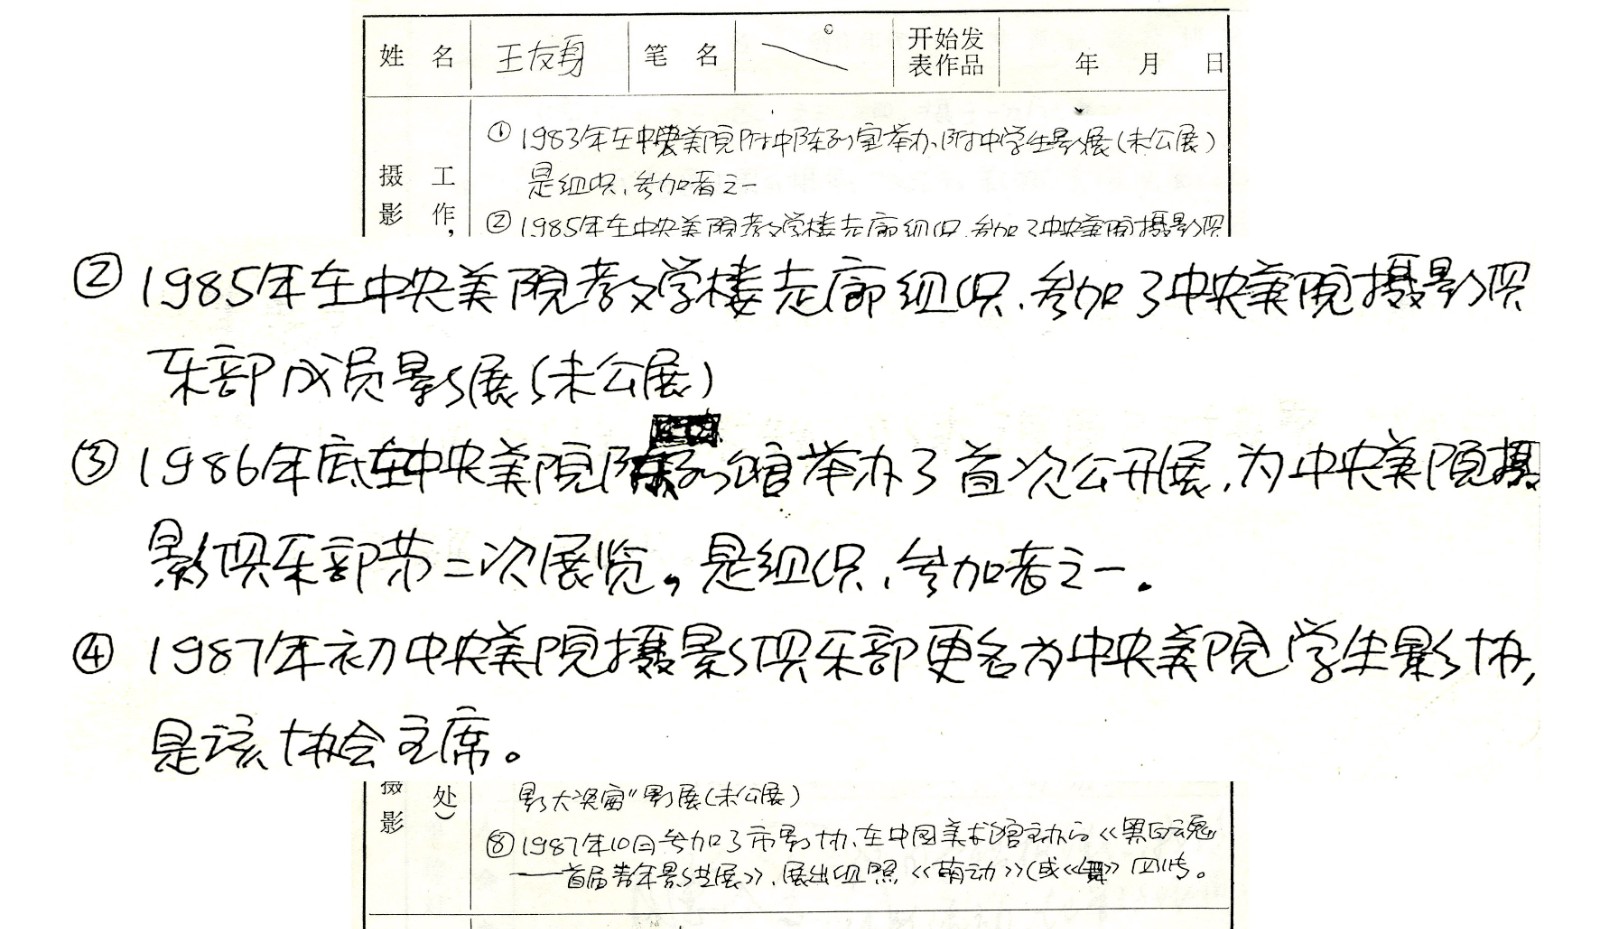 姓 名 王友身 笔 名 开始发表作品 年 月 日
摄影 工作,
① 1983年在中央美院附中陈列室举办附中学生影展(未公展)
是组织、参加者之一
② 1985年在中央美院教学楼走廊组织、参加了中央美院摄影俱
② 1985年在中央美院教学楼走廊组织、参加了中央美院摄影俱
乐部成员影展(未公展)
③ 1986年底在中央美院陈列馆举办了首次公开展,为中央美院摄
影俱乐部第二次展览。是组织、参加者之一。
④ 1987年初中央美院摄影俱乐部更名为中央美院学生影协,
是该协会主席。
摄影 处)
影大奖赛"影展(未公展)
⑧ 1987年10月参加了市影协、在中国美术馆主办的《黑白魂
——首届青年影艺展》、展出组照《萌动》(或《舞》四件。